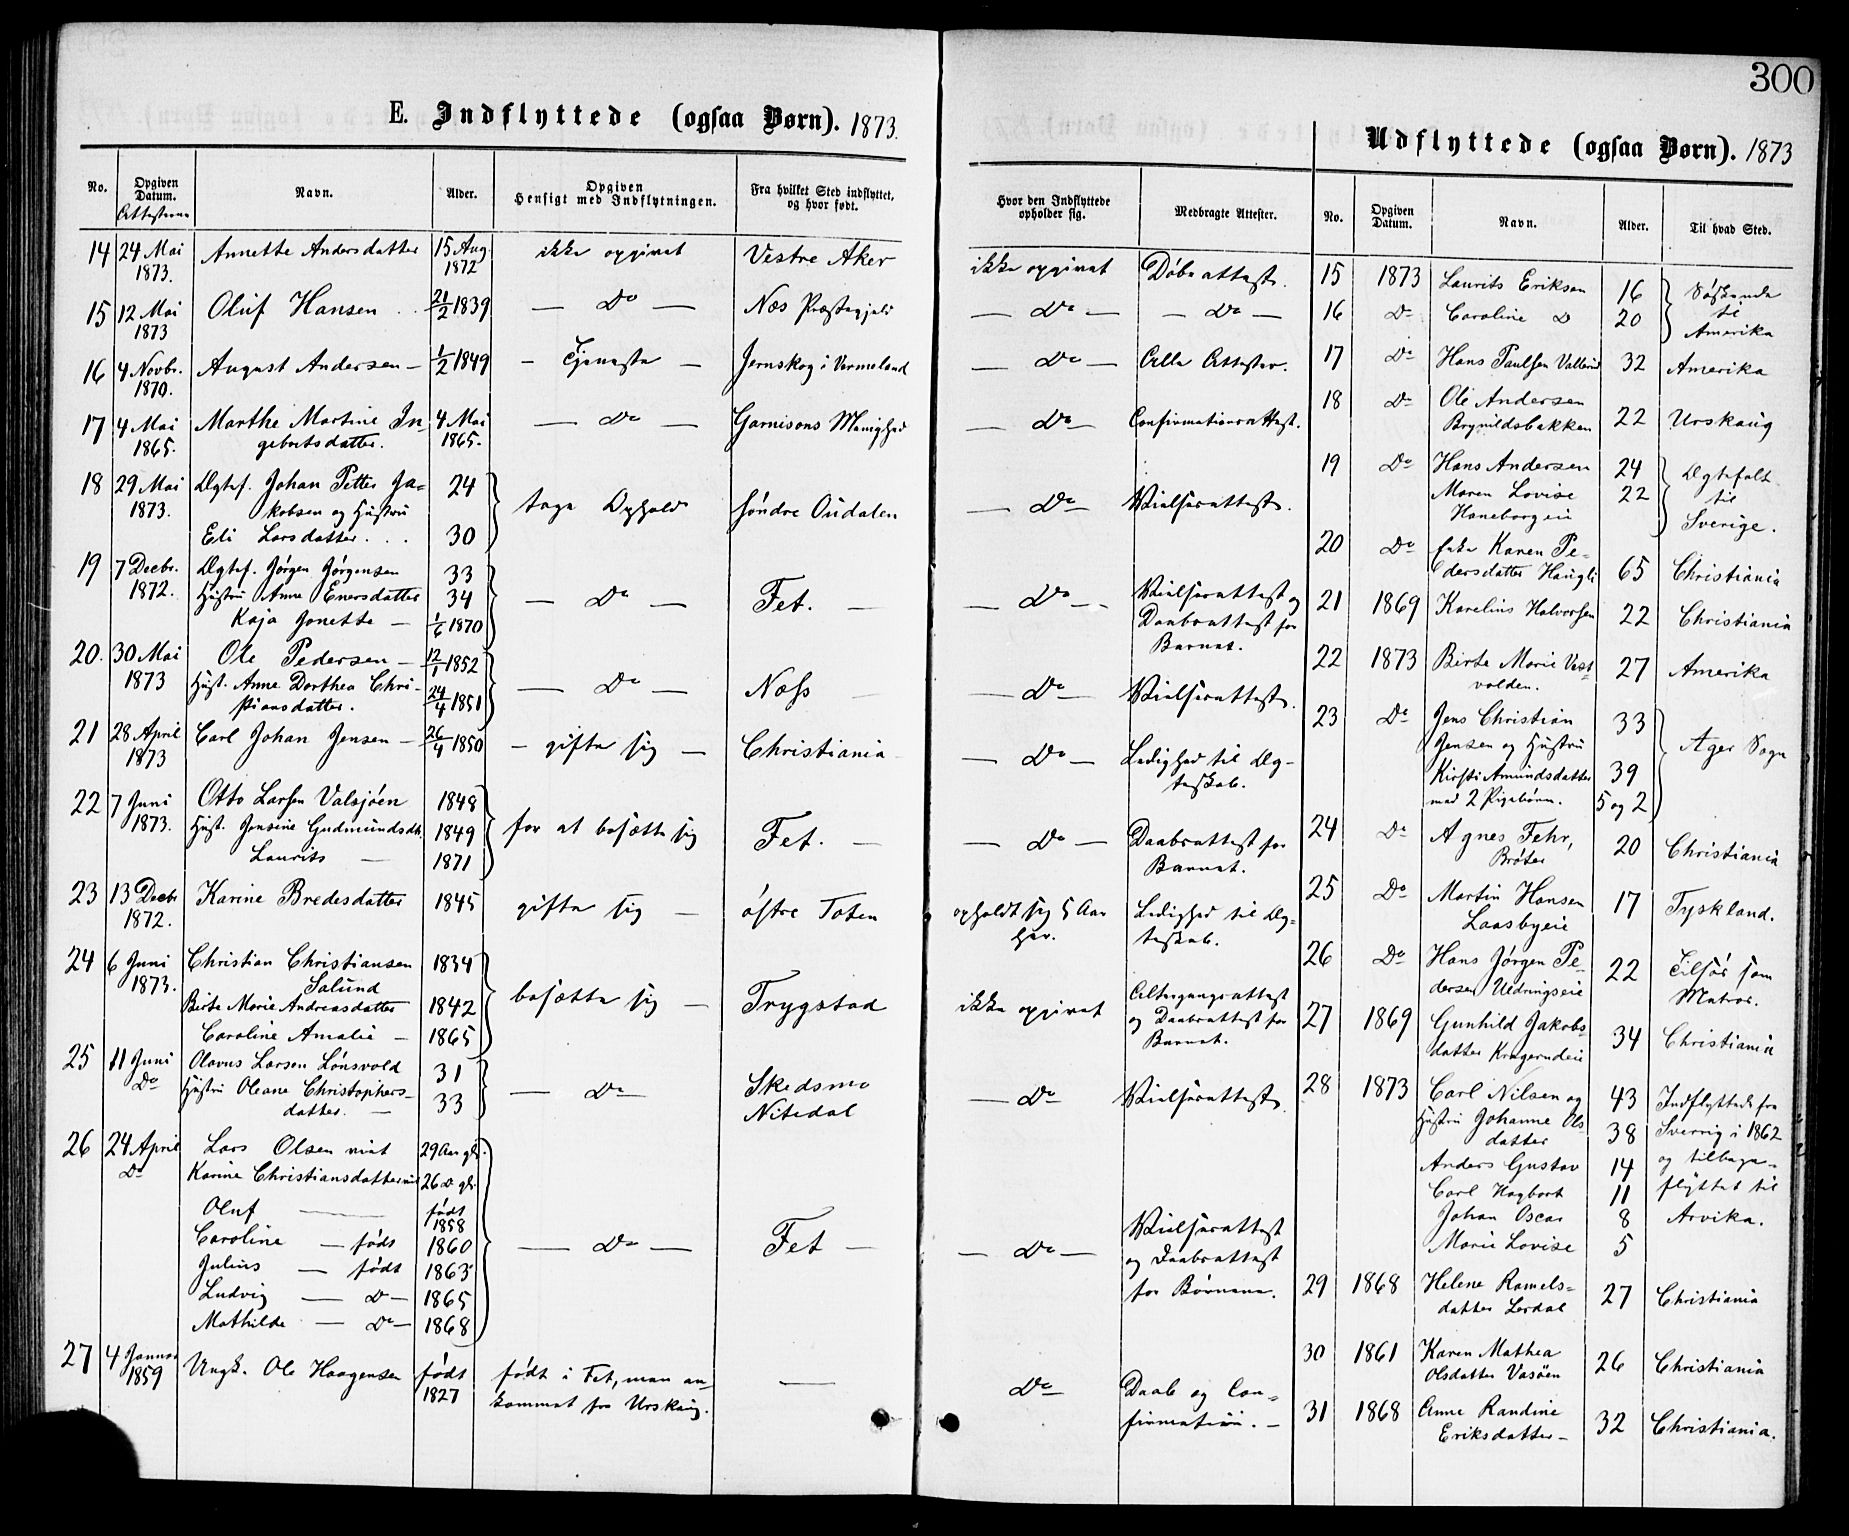 300
E. Indflyttede (ogsaa Børn). 1873.
No. Opgiven Datum. Attesterne Navn. Alder. Opgiven Hensigt med Indflytningen. Fra hvilket Sted indflyttet, og hvor født. Hvor den Indflyttede opholder sig. Medbragte Attester.
14 24 Mai Annette Andersdatter 15 Aug. ikke opgivet Vestre Aker ikke opgivet Døbeattest.
1873. 1872
15 12 Mai Oluf Hansen 21/2 1839 — Do — Næs Præstegjeld — Do — — Do —
1873
16 4 Novbr. August Andersen — 1/2 1849 — Tjeneste — Jernskog i Vermeland — Do — Alle Attester.
1870.
17 4 Mai Marthe Martine In- 4 Mai — Do — Garnisons Menighed — Do — Confirmationsattest.
1865. gebertsdatter. 1865.
18 29 Mai Ægtef. Johan Petter Ja- 24 tage Ophold søndre Oudalen — Do — Vielsesattest.
1873. kobsen og Hustru
Eli Larsdatter. . . 30
19 7 Decbr. Ægtef. Jørgen Jørgensen 33 — Do — Fet. — — Do — Vielsesattest og
1872. Hustru Anne Enersdatter 34 Daabsattest for
Kaja Jonette — 1/6 1870 Barnet.
20. 30 Mai Ole Pedersen — 12/1 1852 — Do — Næss — — Do — Vielsesattest.
1873 Hust. Anne Dorthea Chri- 24/4 1851
stiansdatter.
21 28 April Carl Johan Jensen — 26/4 1850 — gifte sig — Christiania — Do — Ledighed til Æg-
1873 teskab.
22 7 Juni Otto Larsen Valsjøen 1848 for at bosætte sig Fet. — — Do — Daabsattest for
1873. Hust. Jensine Gudmundsdtr. 1849 Barnet.
Laurits — 1871
23 13 Decbr. Karine Bredesdatter 1845 gifte sig — østre Toten opholdt sig 5 Aar Ledighed til Æg-
1872. her. teskab.
24 6 Juni Christian Christiansen 1834 bosætte sig — Trygstad ikke opgivet Altergangsattest
1873. Solund og Daabsattest for
Birte Marie Andreasdatter 1842 Barnet.
Caroline Amalie — 1865
25 11 Juni Olavus Larsen Lønsvold 31 — Do — Skedsmo — Do — Vielsesattest.
Do Hustru Oleane Christophers- 33 Nitedal
datter. —
26 24 April Lars Olsen 29 Aar gl. — Do — Fet — — Do — Vielsesattest
Do Karine Christiansdatter 26 D gl. og Daabsattest
Oluf — født 1858 for Børnene.
Caroline — født 1860
Julius — født 1863
Ludvig — D — 1865
Mathilde — Do — 1868
27 4 Januar Ungk. Ole Haagensen født født i Fet, men an- — Do Daab og Con-
1859 1827 kommet fra Urskaug. firmation. —
Udflyttede (ogsaa Børn). 1873
No. Opgiven Datum. Navn. Alder. Til hvad Sted.
15 1873 Laurits Eriksen 16 Søskende
16 Do Caroline D 20 til Amerika
17 Do Hans Paulsen Vallerud 32 Amerika
18 Do Ole Andersen
Brynildsbakken 22 Urskaug
19 Do Hans Andersen 24 Ægtefolk
Maren Lovise 22 til
Haneborgeie Sverige.
20 Do Enke Karen Pe-
dersdatter Haugli 65 Christiania
21 1869 Karelius Halvorsen 22 Christiania
22 1873 Birte Marie Vest- 27 Amerika
volden.
23 Do Jens Christian 33 Ager Sogn
Jensen og Hustru
Kirsti Amundsdatter 39
med 2 Pigebørn. 5 og 2
24 Do Agnes Fehr, 20 Christiania
Brøter
25 Do Martin Hansen 17 Tyskland.
Laasbyeie
26 Do Hans Jørgen Pe- 22 Tilsøs som
dersen Uldrungseie Matros.
27 1869 Gunhild Jakobs- 34 Christiania
datter Kragerudeie
28 1873 Carl Nilsen og 43 Indflyttede fra
Hustru Johanne Ols- 38 Sverrig i 1862
datter og tilbage-
Anders Gustav 14 flyttet til
Carl Hagbart 11 Arvika.
Johan Oscar 8
Marie Lovise 5
29 1868 Helene Ramels- 27 Christiania
datter Lerdal
30 1861 Karen Mathea 26 Christiania
Olsdatter Vasøen
31 1868 Anne Randine 32 Christiania.
Eriksdatter —